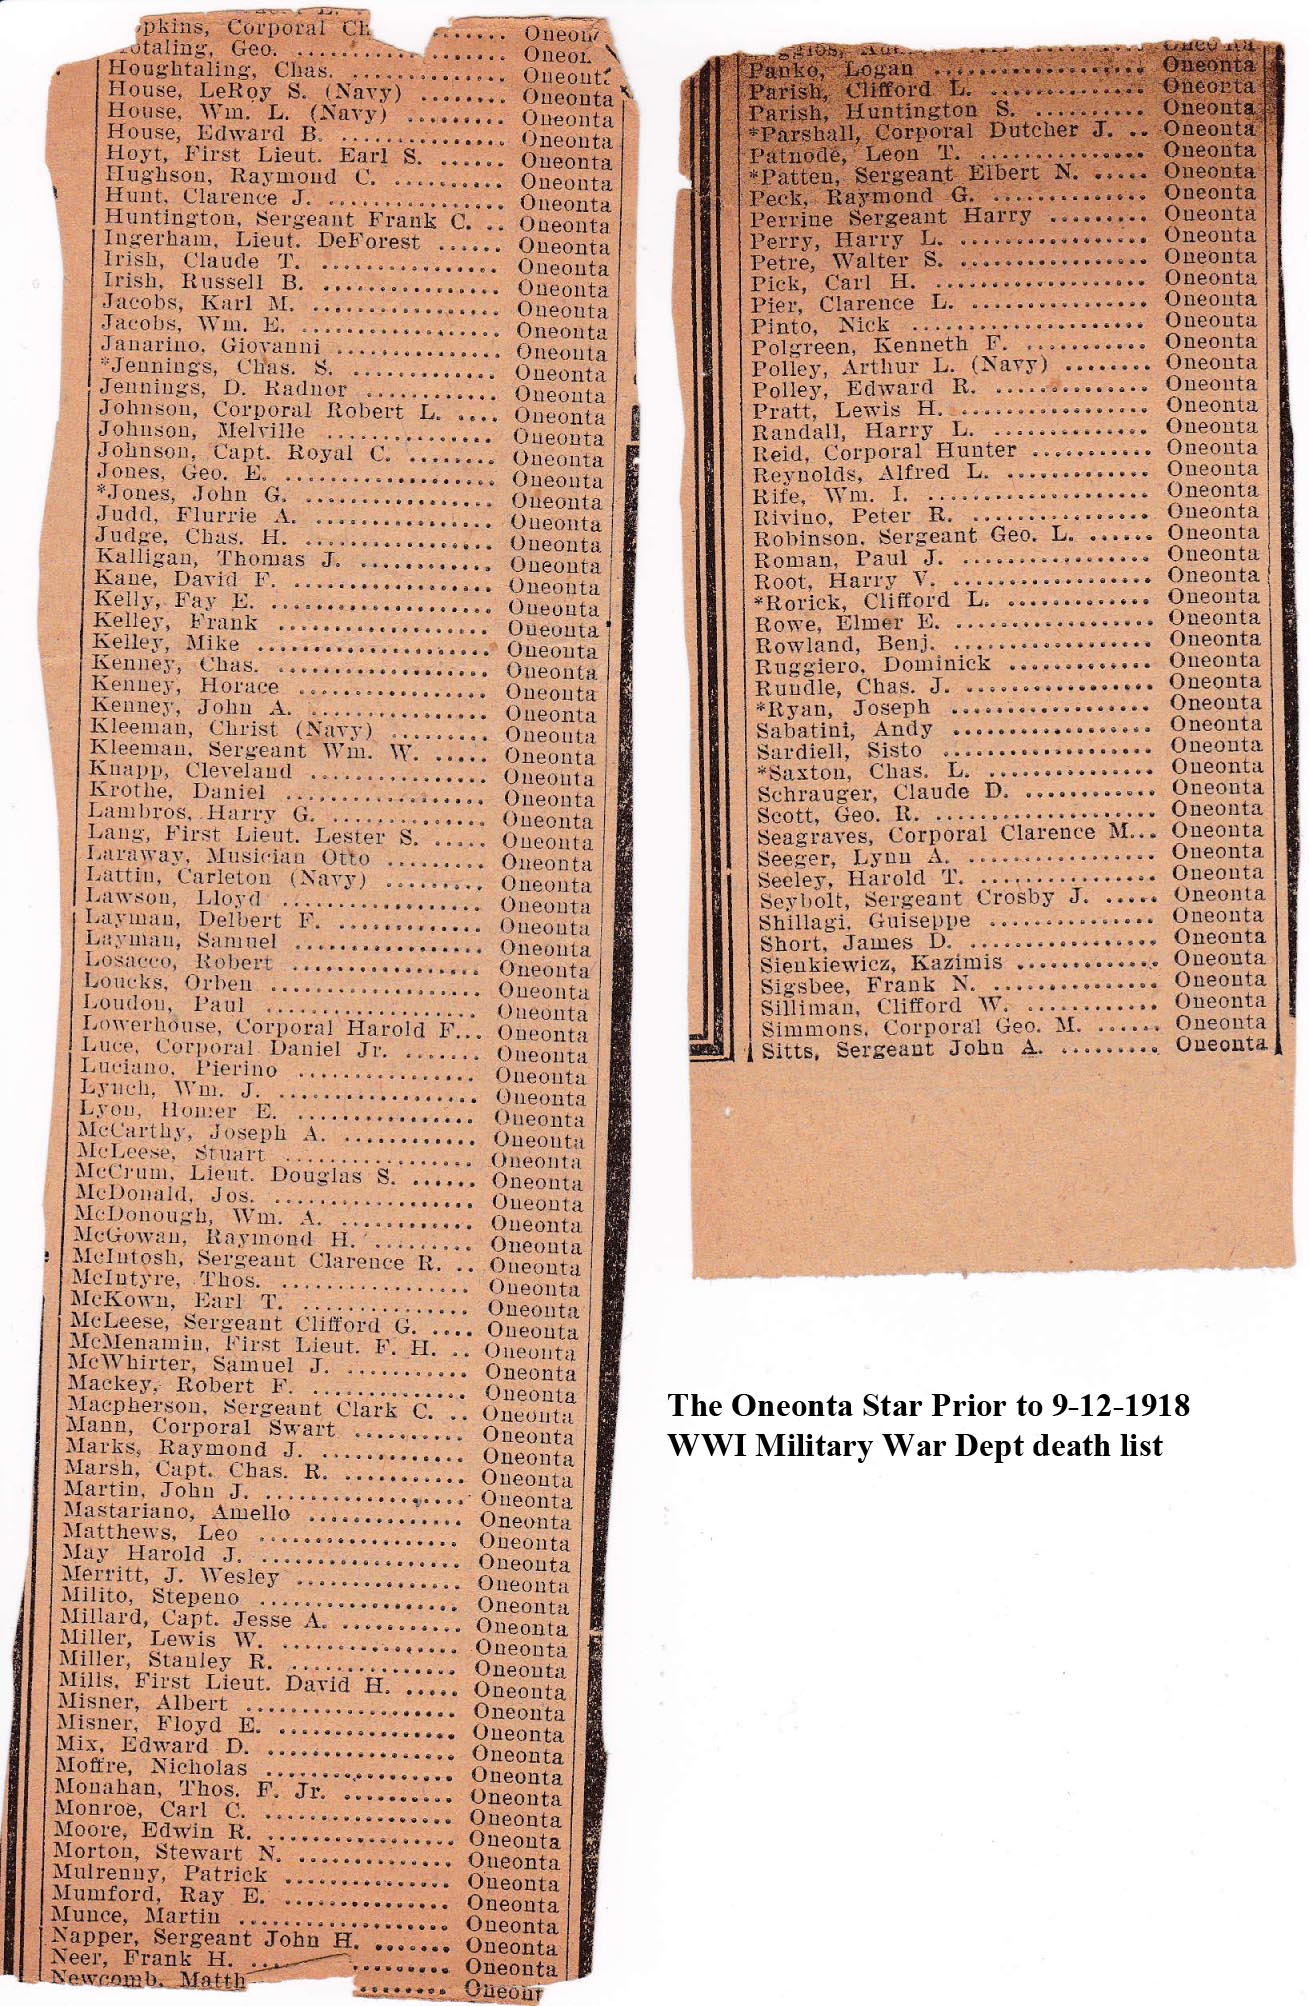 opkins, Corporal Ch ....... Oneon
otaling, Geo. .................. Oneon
Houghtaling, Chas. ............. Oneonta
House, LeRoy S. (Navy) ........ Oneonta
House, Wm. L. (Navy) ......... Oneonta
House, Edward B. .............. Oneonta
Hoyt, First Lieut. Earl S. ...... Oneonta
Hughson, Raymond C. .......... Oneonta
Hunt, Clarence J. ............... Oneonta
Huntington, Sergeant Frank C. .. Oneonta
Ingerham, Lieut. DeForest ...... Oneonta
Irish, Claude T. ................ Oneonta
Irish, Russell B. ................ Oneonta
Jacobs, Karl M. ................. Oneonta
Jacobs, Wm. E. ................. Oneonta
Janarino, Giovanni .............. Oneonta
*Jennings, Chas. S. ............. Oneonta
Jennings, D. Radnor ............ Oneonta
Johnson, Corporal Robert L. .... Oneonta
Johnson, Melville ............... Oneonta
Johnson, Capt. Royal C. ........ Oneonta
Jones, Geo. E. .................. Oneonta
*Jones, John G. ................. Oneonta
Judd, Flurrie A. ................ Oneonta
Judge, Chas. H. ................. Oneonta
Kalligan, Thomas J. ............ Oneonta
Kane, David F. .................. Oneonta
Kelly, Fay E. ................... Oneonta
Kelley, Frank ................... Oneonta
Kelley, Mike .................... Oneonta
Kenney, Chas. .................. Oneonta
Kenney, Horace ................ Oneonta
Kenney, John A. ................ Oneonta
Kleeman, Christ (Navy) ......... Oneonta
Kleeman, Sergeant Wm. W. ..... Oneonta
Knapp, Cleveland ............... Oneonta
Krothe, Daniel ................. Oneonta
Lambros, Harry G. ............. Oneonta
Lang, First Lieut. Lester S. ..... Oneonta
Laraway, Musician Otto ........ Oneonta
Lattin, Carleton (Navy) ......... Oneonta
Lawson, Lloyd .................. Oneonta
Layman, Delbert F. ............. Oneonta
Layman, Samuel ................ Oneonta
Losacco, Robert ................ Oneonta
Loucks, Orben .................. Oneonta
Loudon, Paul ................... Oneonta
Lowerhouse, Corporal Harold F... Oneonta
Luce, Corporal Daniel Jr. ....... Oneonta
Luciano, Pierino ................ Oneonta
Lynch, Wm. J. .................. Oneonta
Lyon, Homer E. ................ Oneonta
McCarthy, Joseph A. ............ Oneonta
McLeese, Stuart ................ Oneonta
McCrum, Lieut. Douglas S. ...... Oneonta
McDonald, Jos. ................. Oneonta
McDonough, Wm. A. ............ Oneonta
McGowan, Raymond H. ......... Oneonta
McIntosh, Sergeant Clarence R. .. Oneonta
McIntyre, Thos. ................ Oneonta
McKown, Earl T. ............... Oneonta
McLeese, Sergeant Clifford G. .... Oneonta
McMenamin, First Lieut. F. H. .. Oneonta
McWhirter, Samuel J. .......... Oneonta
Mackey, Robert F. .............. Oneonta
Macpherson, Sergeant Clark C. .. Oneonta
Mann, Corporal Swart .......... Oneonta
Marks, Raymond J. ............. Oneonta
Marsh, Capt. Chas. R. .......... Oneonta
Martin, John J. ................. Oneonta
Mastariano, Amello ............. Oneonta
Matthews, Leo .................. Oneonta
May Harold J. .................. Oneonta
Merritt, J. Wesley .............. Oneonta
Milito, Stepeno ................. Oneonta
Millard, Capt. Jesse A. .......... Oneonta
Miller, Lewis W. ................ Oneonta
Miller, Stanley R. ............... Oneonta
Mills, First Lieut. David H. ..... Oneonta
Misner, Albert .................. Oneonta
Misner, Floyd E. ................ Oneonta
Mix, Edward D. ................. Oneonta
Moffre, Nicholas ................ Oneonta
Monahan, Thos. F. Jr. .......... Oneonta
Monroe, Carl C. ................ Oneonta
Moore, Edwin R. ................ Oneonta
Morton, Stewart N. ............. Oneonta
Mulrenny, Patrick .............. Oneonta
Mumford, Ray E. ............... Oneonta
Munce, Martin .................. Oneonta
Napper, Sergeant John H. ....... Oneonta
Neer, Frank H. ............ Oneonta
Newcomb, Matth ........ Oneon
Oneonta
Panko, Logan ................... Oneonta
Parish, Clifford L. .............. Oneonta
Parish, Huntington S. .......... Oneonta
*Parshall, Corporal Dutcher J. .. Oneonta
Patnode, Leon T. ............... Oneonta
*Patten, Sergeant Elbert N. ..... Oneonta
Peck, Raymond G. .............. Oneonta
Perrine Sergeant Harry ......... Oneonta
Perry, Harry L. ................. Oneonta
Petre, Walter S. ................ Oneonta
Pick, Carl H. ................... Oneonta
Pier, Clarence L. ................ Oneonta
Pinto, Nick ..................... Oneonta
Polgreen, Kenneth F. ........... Oneonta
Polley, Arthur L. (Navy) ........ Oneonta
Polley, Edward R. .............. Oneonta
Pratt, Lewis H. ................. Oneonta
Randall, Harry L. .............. Oneonta
Reid, Corporal Hunter ........... Oneonta
Reynolds, Alfred L. ............. Oneonta
Rife, Wm. I. .................... Oneonta
Rivino, Peter R. ................ Oneonta
Robinson, Sergeant Geo. L. ...... Oneonta
Roman, Paul J. ................. Oneonta
Root, Harry V. .................. Oneonta
*Rorick, Clifford L. ............. Oneonta
Rowe, Elmer E. ................. Oneonta
Rowland, Benj. .................. Oneonta
Ruggiero, Dominick ............. Oneonta
Rundle, Chas. J. ................ Oneonta
*Ryan, Joseph .................. Oneonta
Sabatini, Andy .................. Oneonta
Sardiell, Sisto ................... Oneonta
*Saxton, Chas. L. ............... Oneonta
Schrauger, Claude D. ............ Oneonta
Scott, Geo. R. ................... Oneonta
Seagraves, Corporal Clarence M... Oneonta
Seeger, Lynn A. ................. Oneonta
Seeley, Harold T. ................ Oneonta
Seybolt, Sergeant Crosby J. ..... Oneonta
Shillagi, Guiseppe ............... Oneonta
Short, James D. ................. Oneonta
Sienkiewicz, Kazimis ............. Oneonta
Sigsbee, Frank N. ............... Oneonta
Silliman, Clifford W. ............ Oneonta
Simmons, Corporal Geo. M. ...... Oneonta
Sitts, Sergeant John A. ......... Oneonta
The Oneonta Star Prior to 9-12-1918
WWI Military War Dept death list